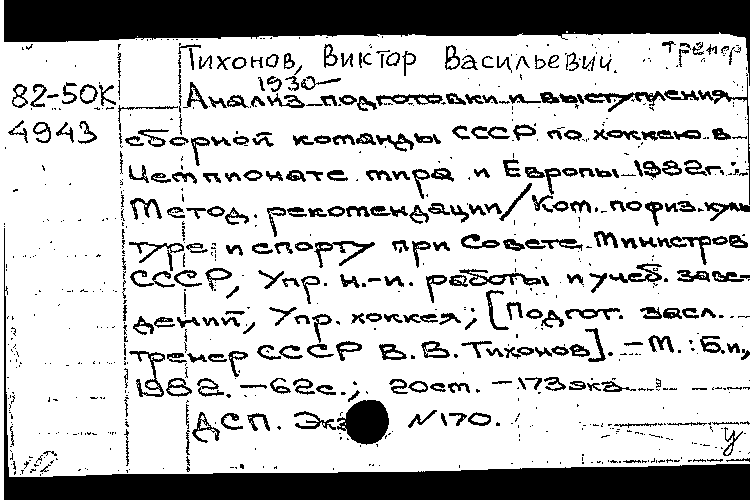 Тихонов, Виктор Васильевич. тренер
1930—
82-50К Анализ подготовки и выступления
4943 сборной команды СССР по хоккею в
Чемпионате мира и Европы 1982г.:
Метод. рекомендации/Ком. по физ.куль
туре и спорту при Совете Министров
СССР, Упр. н.-и. работы и учеб. заве-
дений, Упр. хоккея; [Подгот. засл.
тренер СССР В.В.Тихонов]. — М.: Б.и,
1982. — 62с.; 20см. — 173экз
ДСП. Экз N170.
У